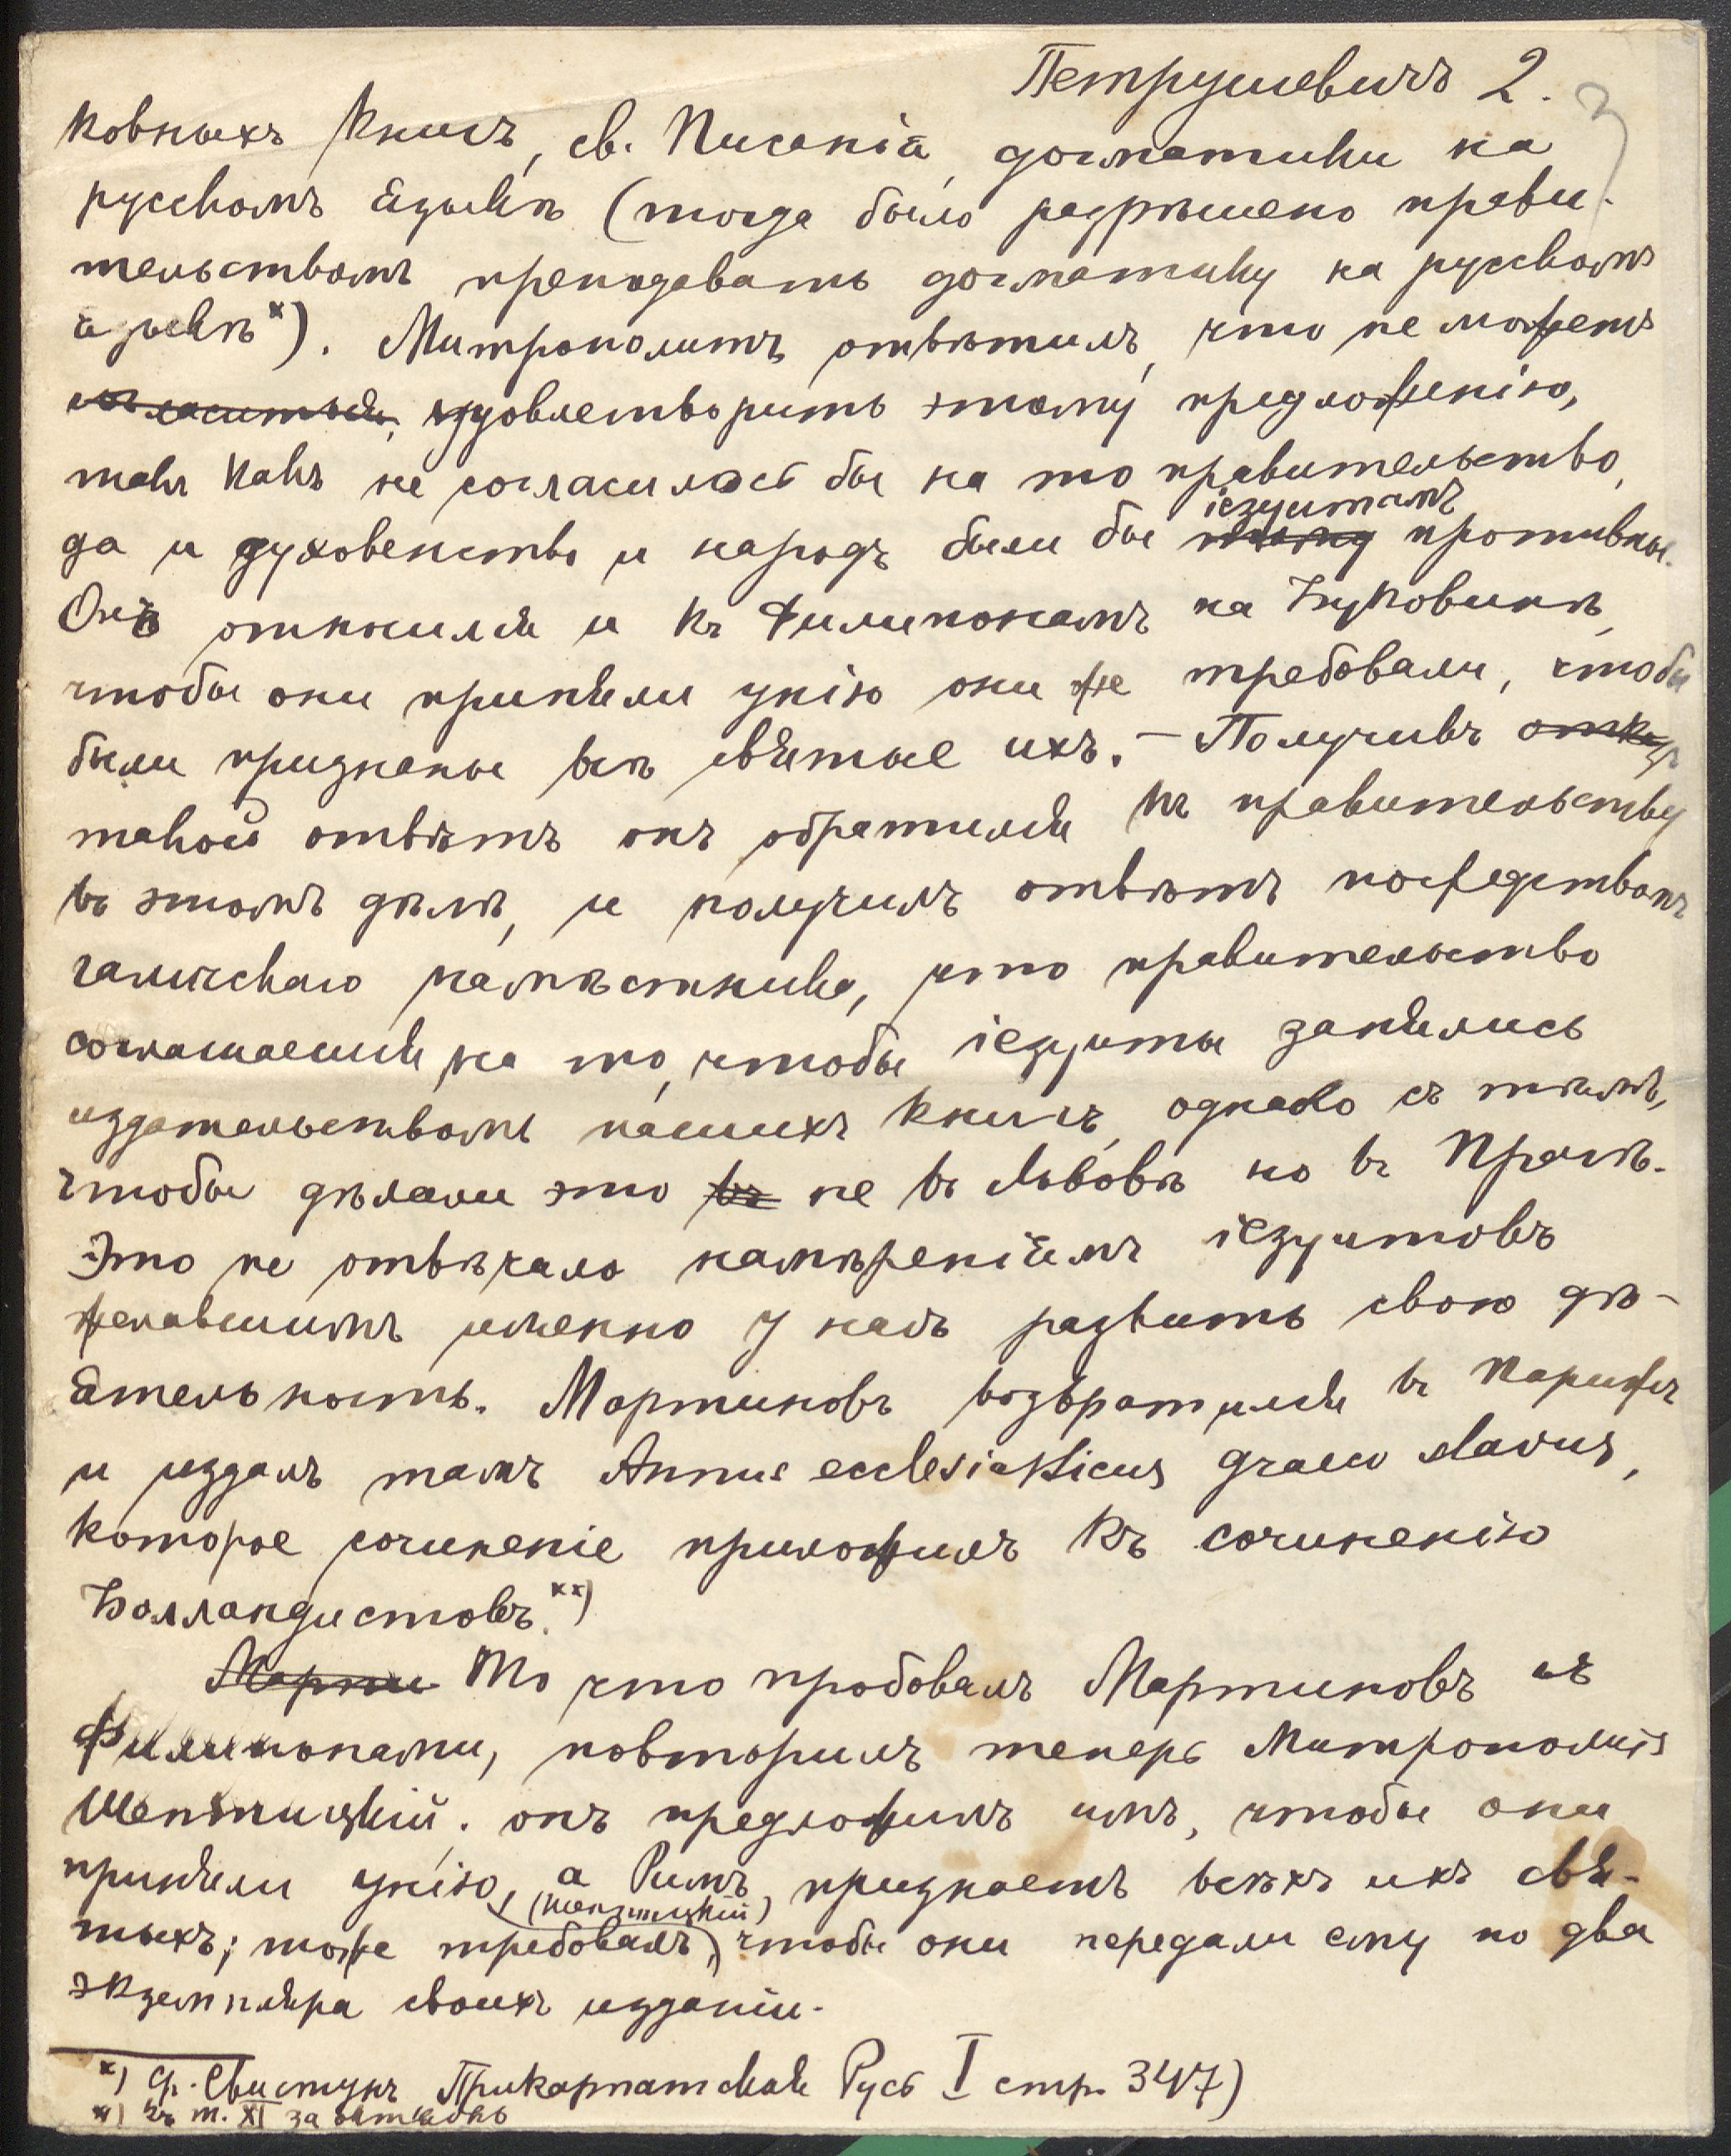 Петрушевичъ 2.
3
ковныхъ книгъ, св. Писанія, догматики на
русскомъ языкѣ (тогда было разрѣшено прави-
тельствомъ преподавать догматику на русскомъ
языкѣ х). Митрополитъ отвѣтилъ, что не можетъ
согласиться, удовлетворить этому предложенію,
такъ какъ не согласилось бы на то правительство,
да и духовенство и народъ были бы іезуитамъ противны.
Онъ относился и къ Филипонамъ на Буковинѣ,
чтобы они приняли унію они же требовали, чтобы
были признаны всѣ святые ихъ. – Получивъ отказъ
такой отвѣтъ онъ обратился къ правительству
въ этомъ дѣлѣ, и получилъ отвѣтъ посредствомъ
галичскаго намѣстника, что правительство
соглашается на то, чтобы іезуиты занялись
издательствомъ нашихъ книгъ, однако съ тѣмъ,
чтобы дѣлали это въ не въ Львовѣ но въ Прагѣ.
Это не отвѣчало намѣреніямъ іезуитовъ
желавшимъ именно у насъ развить свою дѣ-
ятельность. Мартиновъ возвратился въ Парижъ
и издалъ тамъ Annus ecclesiasticus graeco slavus,
которое сочиненіе приложилъ къ сочиненію
Болландистовъ. хх)
Марти То что пробовалъ Мартиновъ съ
Филипонами, повторилъ теперь Митрополитъ
Шептицкій. онъ предложилъ имъ, чтобы они
приняли унію, а Римъ признаетъ всѣхъ ихъ свя-
тыхъ; тоже требовалъ (Шептицкій), чтобы они передали ему по два
экземпляра своихъ изданій.
х) Ср. Свистунъ Прикарпатская Русь I стр. 347)
хх) Въ т. XI за октябрь